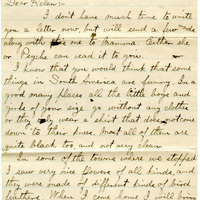 Dear Helen:-
I don't have much time to write
you a letter now, but will send a few words
along with the one to Mamma. Either she
or Psyche can read it to you.
I know that you would think that some
things in South America are funny. In a
good many places all the little boys and
girls of your size go without any clothes
or they only wear a shirt that does not come
down to their knees. Most all of them are
quite black too and not very clean.
In some of the towns where we stopped
I saw very nice flowers of all kinds, and
they were made of different kinds of bird
feathers. When I come home I will bring